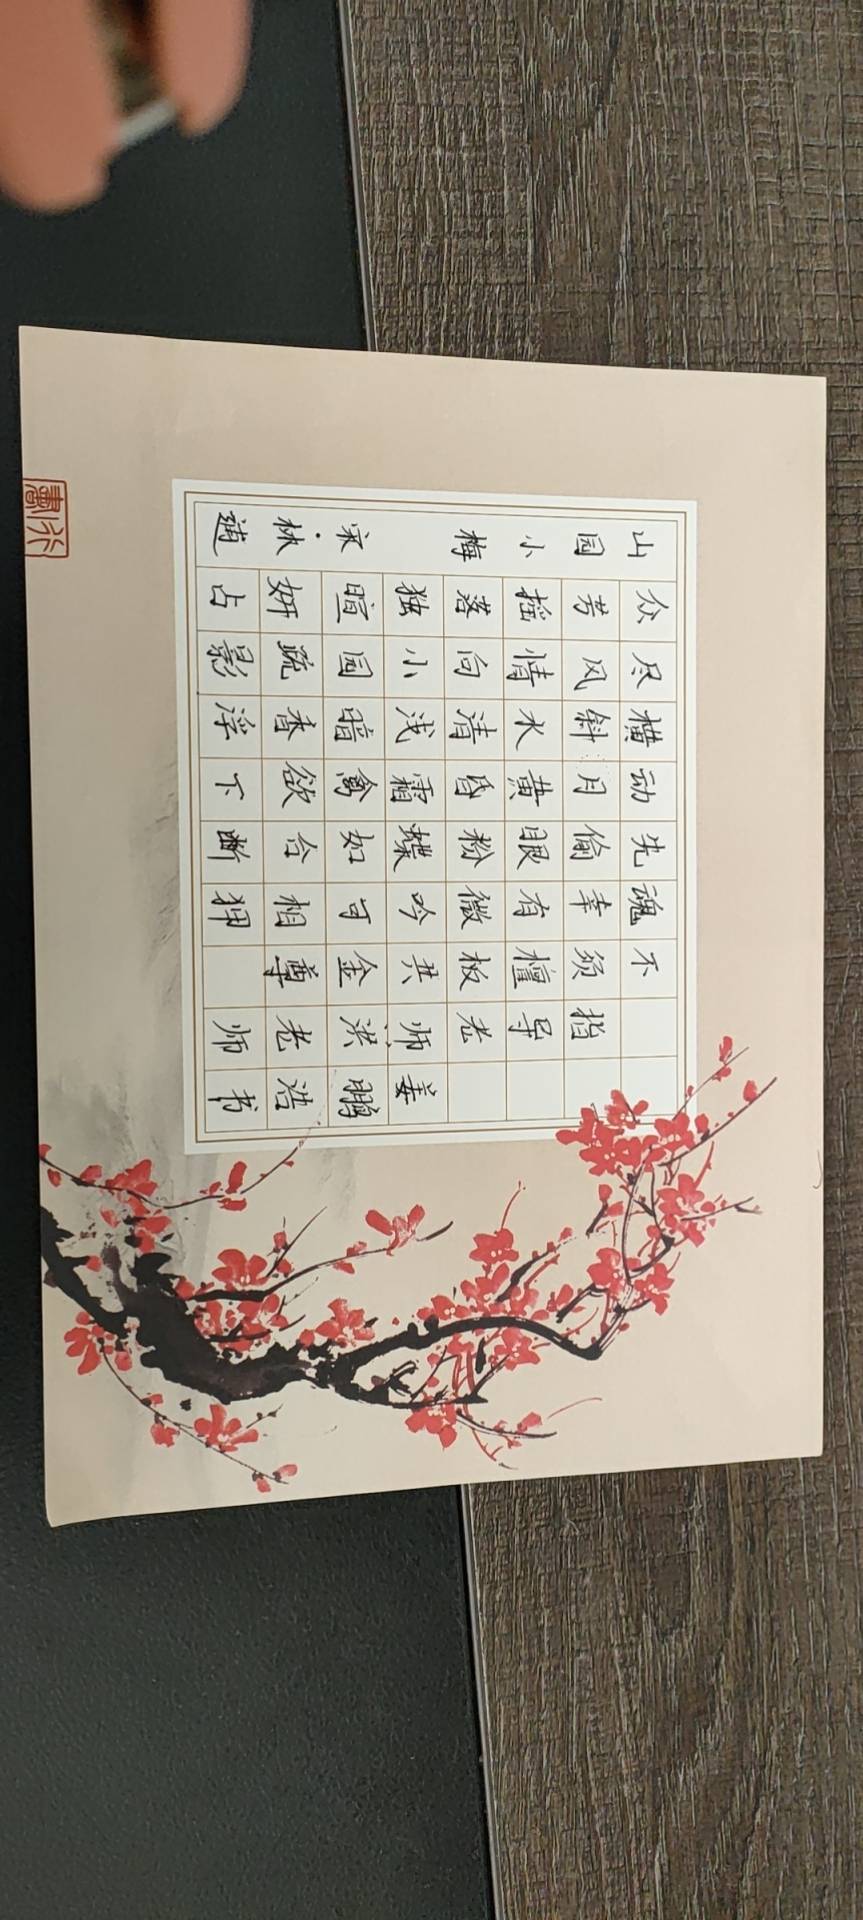 山园小梅 宋·林逋
众芳摇落独暄妍占
尽风情向小园疏影
横斜水清浅暗香浮
动月黄昏霜禽欲下
先偷眼粉蝶如合断
魂幸有微吟可相狎
不须檀板共金尊
指导老师洪老师
姜鹏浩书